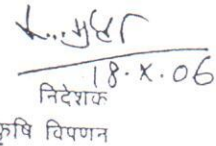 18.X.06
निदेशक
कृषि विपणन